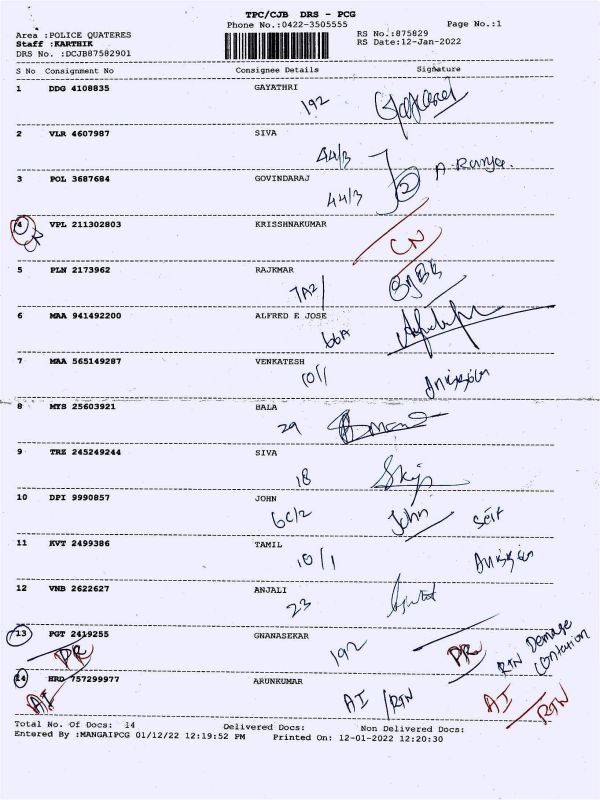 TPC/CJB DRS - PCG
Phone No.:0422-3505555 Page No.:1
Area :POLICE QUATERES RS No.:875829
Staff :KARTHIK RS Date:12-Jan-2022
DRS No. :DCJB87582901
S No Consignment No Consignee Details Signature
1 DDG 4108835 GAYATHRI
192
2 VLR 4607987 SIVA
44/3 A. Ramya
3 POL 3687684 GOVINDARAJ
44/3 2
4 VPL 211302803 KRISSHNAKUMAR
CN CN
5 PLN 2173962 RAJKMAR
7A2/
6 MAA 941492200 ALFRED E JOSE
66A
7 MAA 565149287 VENKATESH
10/1
8 MYS 25603921 BALA
29
9 TRZ 245249244 SIVA
18
10 DPI 9990857 JOHN
6C/2 John Self
11 KVT 2499386 TAMIL
10/1
12 VNB 2622627 ANJALI
23
13 PGT 2419255 GNANASEKAR
PR 192 PR RTN Demage
14 HRD 757299977 ARUNKUMAR
AI AI /RTN AI RTN
Total No. Of Docs: 14 Delivered Docs: Non Delivered Docs:
Entered By :MANGAIPCG 01/12/22 12:19:52 PM Printed On: 12-01-2022 12:20:30